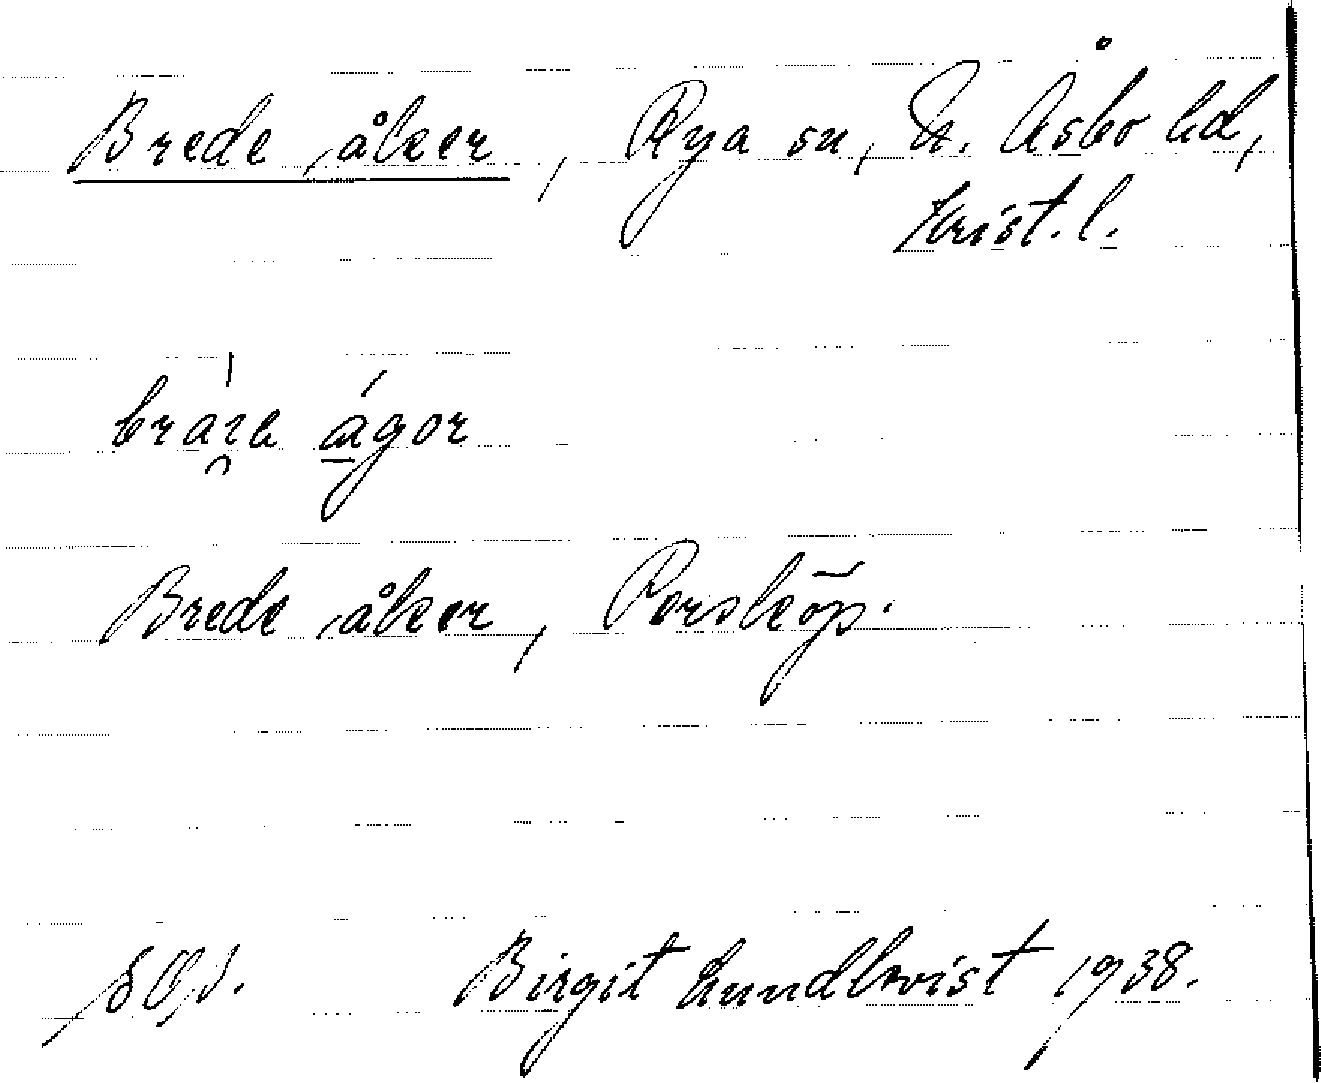 Brede åker, Rya sn, N. Åsbo hd,
Krist. l.
ágor
Brede åker, Porsköp.
Birgit Lundkvist 1938.